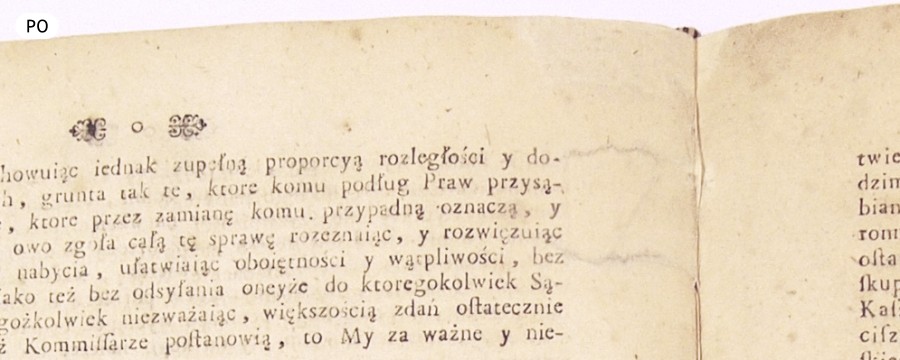 PO
o
howuiąc iednak zupełną proporcyą rozległości y do-
h, grunta tak te, ktore komu podług Praw przysą-
, ktore przez zamianę komu. przypadną oznaczą, y
owo zgoła całą tę sprawę rozeznaiąc, y rozwięzuiąc
nabycia, ułatwiaiąc oboiętności y wątpliwości, bez
ako też bez odsyłania oneyże do ktoregokolwiek Są-
gożkolwiek niezważaiąc, większością zdań ostatecznie
ż Kommissarze postanowią, to My za ważne y nie-
twie
dzim
bian
rom
osta
skup
Kas
cisz